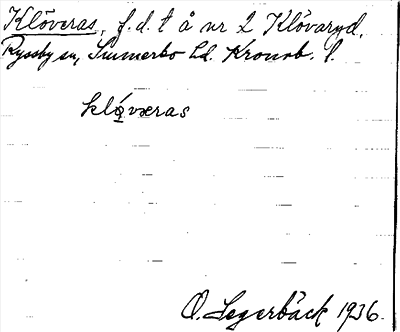 Klöveras, f.d. t å nr 2 Klövaryd,
Ryssby sn, Sunnerbo hd. Kronob. l.
klǫ́væras
O. Segerbäck 1936.